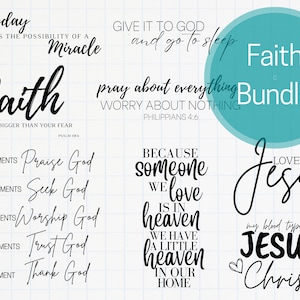 day
IS THE POSSIBILITY OF A
Miracle
GIVE IT TO GOD
and go to sleep
Faith
Bundl
faith
BIGGER THAN YOUR FEAR
pray about everything
WORRY ABOUT NOTHING
PHILIPPIANS 4:6
MENTS Praise God
MENTS Seek God
MENTS Worship God
MENTS Trust God
MENT Thank God
BECAUSE
someone
WE love
IS IN
heaven
WE HAVE
A LITTLE
heaven
IN OUR
HOME
LOVE
Jes
my blood type
JESU
Chris